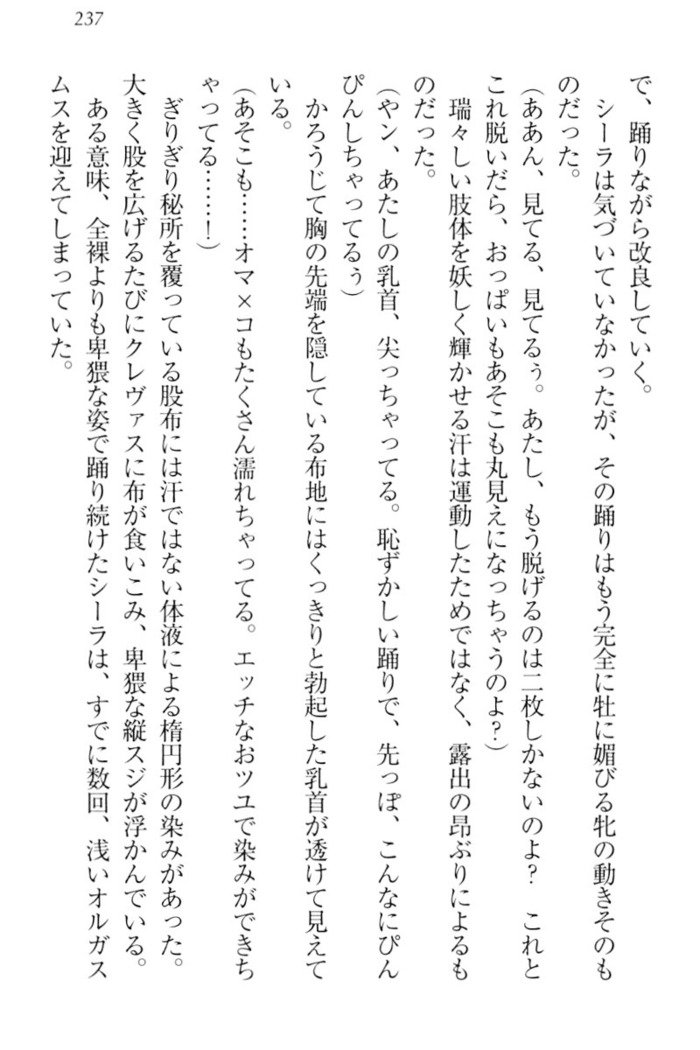 237
で、踊りながら改良していく。
シーラは気づいていなかったが、その踊りはもう完全に牡に媚びる牝の動きそのも
のだった。
（ああん、見てる、見てるぅ。あたし、もう脱げるのは二枚しかないのよ？　これと
これ脱いだら、おっぱいもあそこも丸見えになっちゃうのよ？）
瑞々しい肢体を妖しく輝かせる汗は運動したためではなく、露出の昂ぶりによるも
のだった。
（やン、あたしの乳首、尖っちゃってる。恥ずかしい踊りで、先っぽ、こんなにぴん
ぴんしちゃってるぅ）
かろうじて胸の先端を隠している布地にはくっきりと勃起した乳首が透けて見えて
いる。
（あそこも……オマ×コもたくさん濡れちゃってる。エッチなおツユで染みができち
ゃってる……！）
ぎりぎり秘所を覆っている股布には汗ではない体液による楕円形の染みがあった。
大きく股を広げるたびにクレヴァスに布が食いこみ、卑猥な縦スジが浮かんでいる。
ある意味、全裸よりも卑猥な姿で踊り続けたシーラは、すでに数回、浅いオルガス
ムスを迎えてしまっていた。